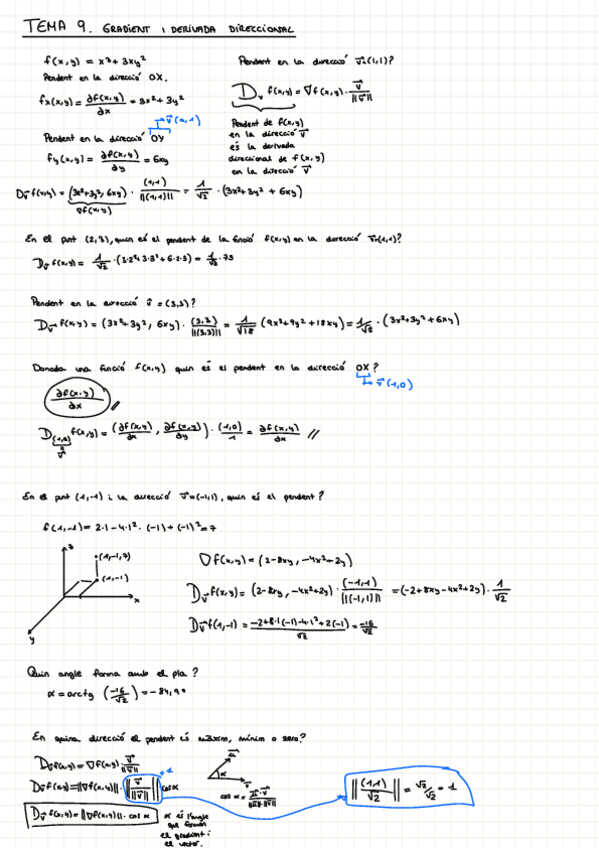 TEMA 9. GRADIENT I DERIVADA DIRECCIONAL
f(x,y) = x³ + 3xy²
Pendent en la direcció OX.
fx(x,y) = ∂f(x,y)/∂x = 3x² + 3y²
v⃗(0,1)
Pendent en la direcció OY
fy(x,y) = ∂f(x,y)/∂y = 6xy
Pendent en la direcció v⃗=(1,1)?
D_v⃗ f(x,y) = ∇f(x,y) · v⃗/||v⃗||
Pendent de f(x,y)
en la direcció v⃗
és la derivada
direccional de f(x,y)
en la direcció v⃗
D_v⃗ f(x,y) = (3x²+3y², 6xy) · (1,1)/||(1,1)|| = 1/√2 · (3x²+3y² + 6xy)
∇f(x,y)
En el punt (2,3), quin és el pendent de la funció f(x,y) en la direcció v⃗=(1,1)?
D_v⃗ f(x,y) = 1/√2 · (3·2²+3·3²+6·2·3) = 1/√2 · 75
Pendent en la direcció v⃗ = (3,3)?
D_v⃗ f(x,y) = (3x²+3y², 6xy) · (3,3)/||(3,3)|| = 1/√18 (9x²+9y²+18xy) = 1/√2 · (3x²+3y²+6xy)
Donada una funció f(x,y) quin és el pendent en la direcció OX?
v⃗(1,0)
∂f(x,y)/∂x //
D_(1,0) f(x,y) = (∂f(x,y)/∂x, ∂f(x,y)/∂y) · (1,0)/1 = ∂f(x,y)/∂x //
v⃗
En el punt (1,-1) i la direcció v⃗=(-1,1), quin és el pendent?
f(1,-1) = 2·1 - 4·1²·(-1) + (-1)² = 7
z
(1,-1,7)
(1,-1)
x
y
∇f(x,y) = (2-8xy, -4x²+2y)
D_v⃗ f(x,y) = (2-8xy, -4x²+2y) · (-1,1)/||(-1,1)|| = (-2+8xy-4x²+2y) · 1/√2
D_v⃗ f(1,-1) = -2+8·1·(-1)-4·1²+2(-1)/√2 = -16/√2
Quin angle forma amb el pla?
α = arctg (-16/√2) = -84,9º
En quina direcció el pendent és màxim, mínim o zero?
D_v⃗ f(x,y) = ∇f(x,y) · v⃗/||v⃗||
D_v⃗ f(x,y) = ||∇f(x,y)|| · ||v⃗/||v⃗|||| cos α
1
D_v⃗ f(x,y) = ||∇f(x,y)|| · cos α
α és l'angle
que formen
el gradient i
el vector.
u⃗
α
v⃗
cos α = u⃗·v⃗/||u⃗||·||v⃗||
||(1,1)/√2|| = √2/√2 = 1